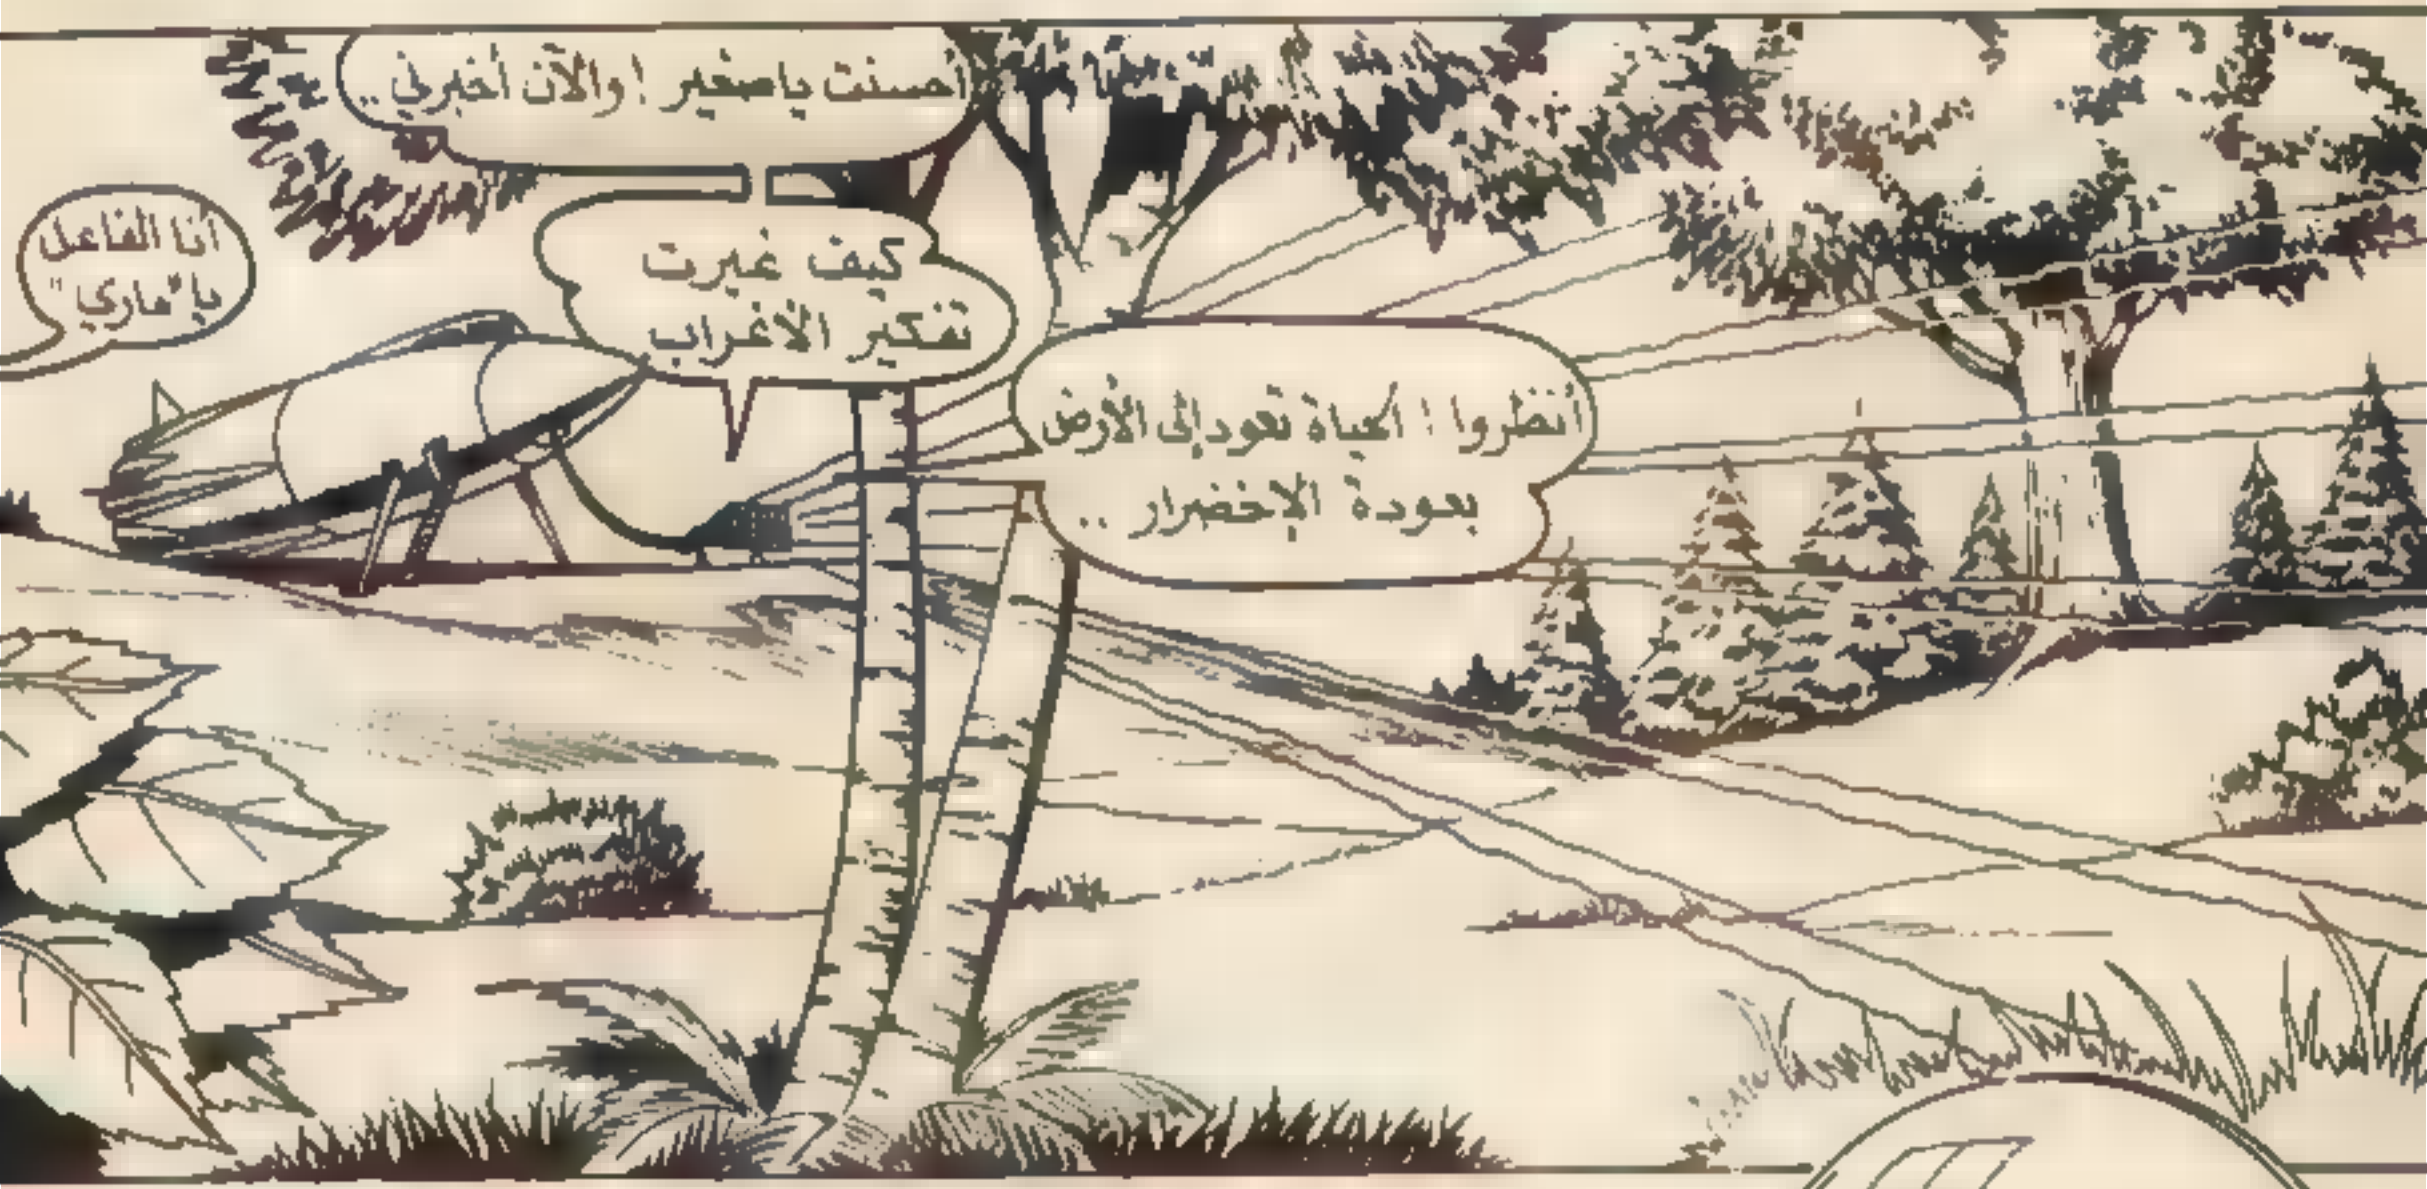 أنظروا ! الحياة تعود إلى الأرض
بعودة الإخضرار ..
أحسنت ياصغير ! والآن أخبرني ..
كيف غيرت
تفكير الأغراب
أنا الفاعل
يا "ماري"